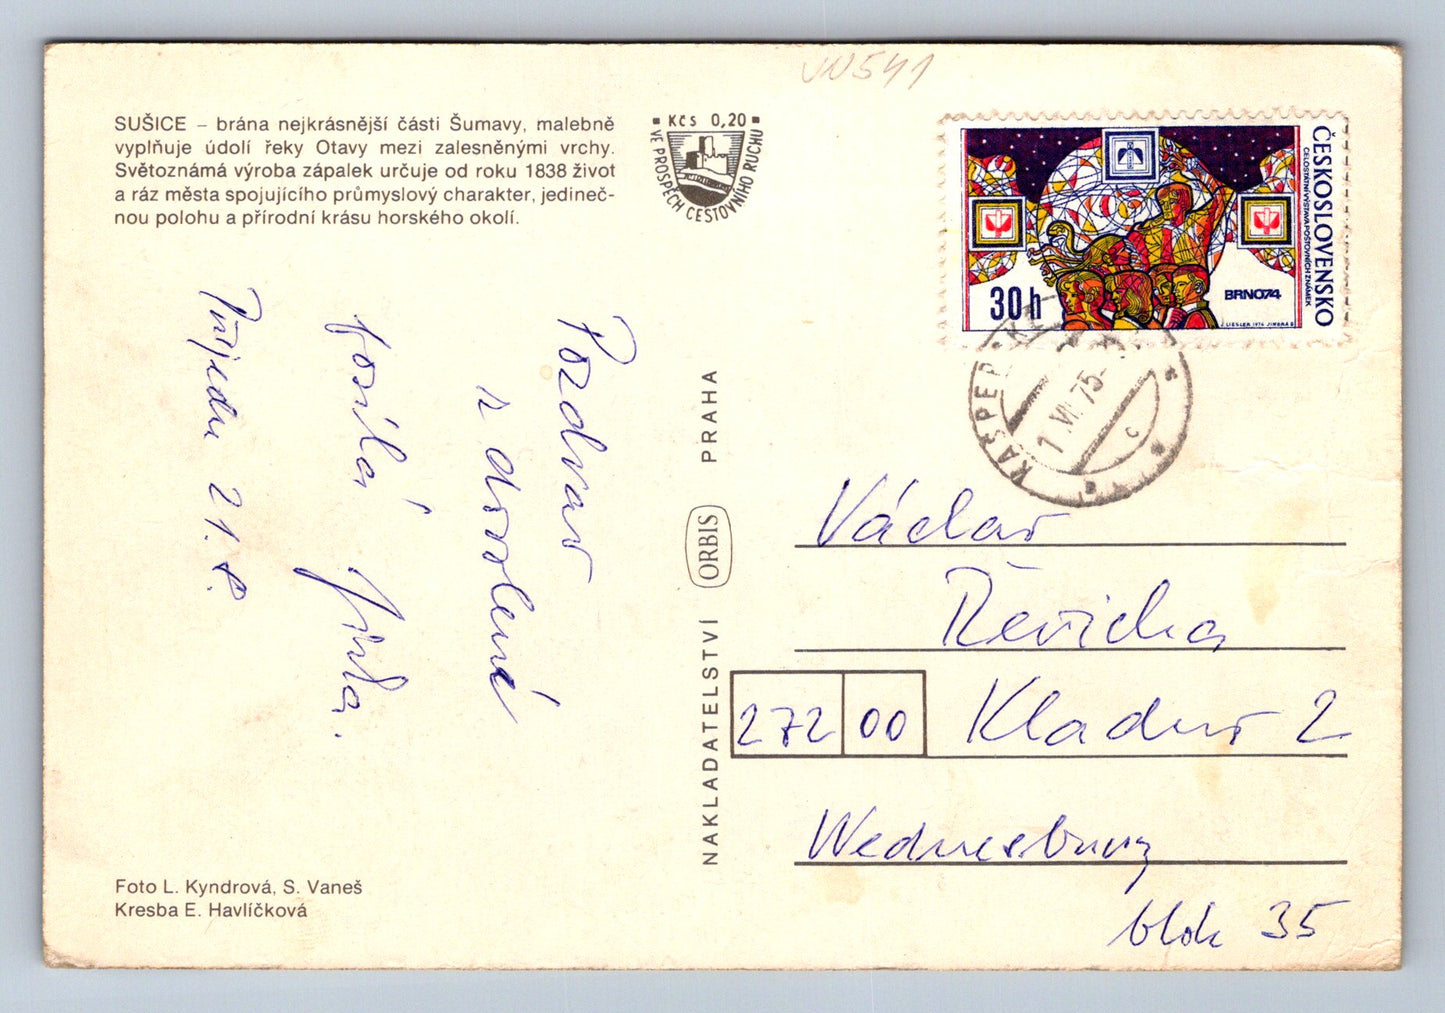 VN541
SUŠICE – brána nejkrásnější části Šumavy, malebně
vyplňuje údolí řeky Otavy mezi zalesněnými vrchy.
Světoznámá výroba zápalek určuje od roku 1838 život
a ráz města spojujícího průmyslový charakter, jedineč-
nou polohu a přírodní krásu horského okolí.
Kčs 0,20
VE PROSPĚCH CESTOVNÍHO RUCHU
ČESKOSLOVENSKO
CELOSTÁTNÍ VÝSTAVA POŠTOVNÍCH ZNÁMEK
30h
BRNO74
J. LIESLER 1974
KAŠPERSKÉ
1.VII.75
C
Pozdrav
z dovolené
posílá
Jirka.
Přijedu 21.8.
NAKLADATELSTVÍ ORBIS PRAHA
Václav
Řevička
272 00 Kladno 2
Wednesbury
blok 35
Foto L. Kyndrová, S. Vaneš
Kresba E. Havlíčková